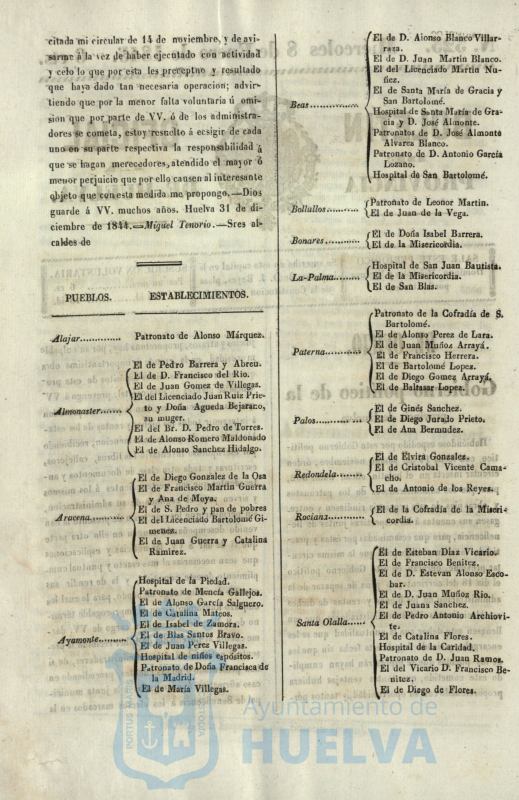 citada mi circular de 14 de noviembre, y de avi-
sarme á la vez de haber ejecutado con actividad
y celo lo que por esta les preceptuo y resultado
que haya dado tan necesaria operacion; advir-
tiendo que por la menor falta voluntaria ú omi-
sion que por parte de VV. ó de los administra-
dores se cometa, estoy resuelto á ecsigir de cada
uno en su parte respectiva la responsabilidad á
que se hagan merecedores, atendido el mayor ó
menor perjuicio que por ello causen al interesante
objeto que con esta medida me propongo.—Dios
guarde á VV. muchos años. Huelva 31 de di-
ciembre de 1844.—Miguel Tenorio.—Sres al-
caldes de
PUEBLOS. ESTABLECIMIENTOS.
Alajar............ Patronato de Alonso Márquez.
El de Pedro Barrera y Abreu.
El de D. Francisco del Rio.
El de Juan Gomez de Villegas.
El del Licenciado Juan Ruiz Prie-
Almonaster........ to y Doña Agueda Bejarano,
su muger.
El del Br. D. Pedro de Torres.
El de Alonso Romero Maldonado
El de Alonso Sanchez Hidalgo.
El de Diego Gonzalez de la Osa
El de Francisco Martin Guerra
y Ana de Moya.
Aracena.......... El de S. Pedro y pan de pobres
El del Licenciado Bartolomé Gi-
menez.
El de Juan Guerra y Catalina
Ramirez.
Hospital de la Piedad.
Patronato de Mencía Gallejos.
El de Alonso García Salguero.
El de Catalina Mateos.
El de Isabel de Zamora.
Ayamonte......... El de Blas Santos Bravo.
El de Juan Perez Villegas.
Hospital de niños espósitos.
Patronato de Doña Francisca de
la Madrid.
El de María Villegas.
El de D. Alonso Blanco Villar-
raza.
El de D. Juan Martin Blanco.
El del Licenciado Martin Nu-
ñez.
El de Santa María de Gracia y
San Bartolomé.
Beas............... Hospital de Santa María de Gra-
cia y D. José Almonte.
Patronatos de D. José Almonte
Alvarez Blanco.
Patronato de D. Antonio García
Lozano.
Hospital de San Bartolomé.
Bollullos.......... Patronato de Leonor Martin.
El de Juan de la Vega.
Bonares........... El de Doña Isabel Barrera.
El de la Misericordia.
Hospital de San Juan Bautista.
La-Palma......... El de la Misericordia.
El de San Blas.
Patronato de la Cofradía de S.
Bartolomé.
El de Alonso Perez de Lara.
El de Juan Muñoz Arrayá.
Paterna........... El de Francisco Herrera.
El de Bartolomé Lopez.
El de Diego Gomez Arrayá.
El de Baltasar Lopez.
El de Ginés Sanchez.
Palos............. El de Diego Jurado Prieto.
El de Ana Bermudez.
El de Elvira Gonzalez.
Redondela........ El de Cristobal Vicente Cama-
cho.
El de Antonio de los Reyes.
Rociana.......... El de la Cofradía de la Miseri-
cordia.
El de Esteban Diaz Vicario.
El de Francisco Benitez.
El de D. Estevan Alonso Esco-
bar.
El de D. Juan Muñoz Rio.
El de Juana Sanchez.
El de Pedro Antonio Archiovi-
Santa Olalla...... te.
El de Catalina Flores.
Hospital de la Caridad.
Patronato de D. Juan Ramos.
El del Vicario D. Francisco Be-
nitez.
El de Diego de Flores.
Ayuntamiento de
HUELVA